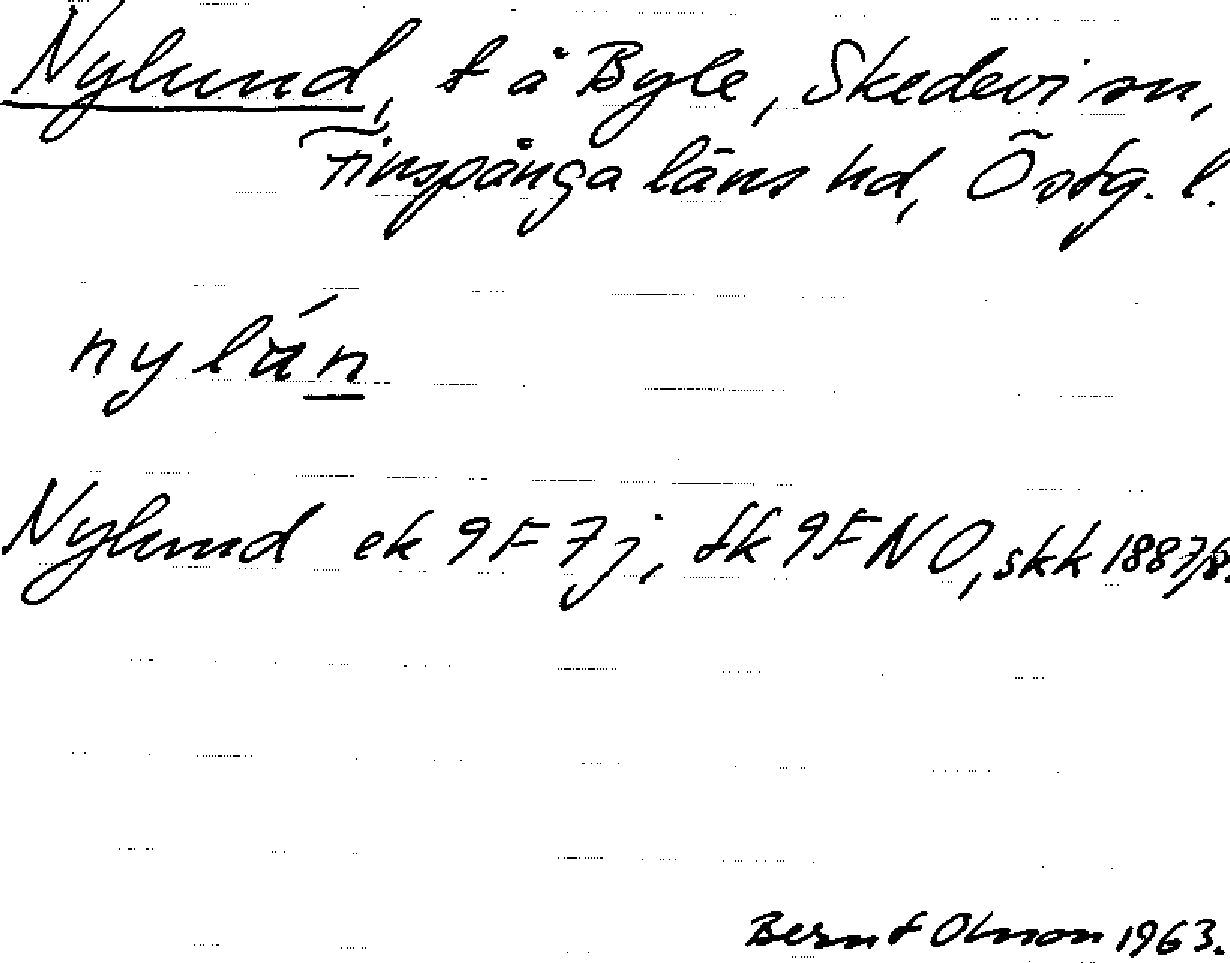 Nylund, t å Byle, Skedevi sn,
Finspånga läns hd, Östg. l.
nylán
Nylund ek 9F7j, tk 9FNO, skk 1887/8.
Bernt Olsson 1963.